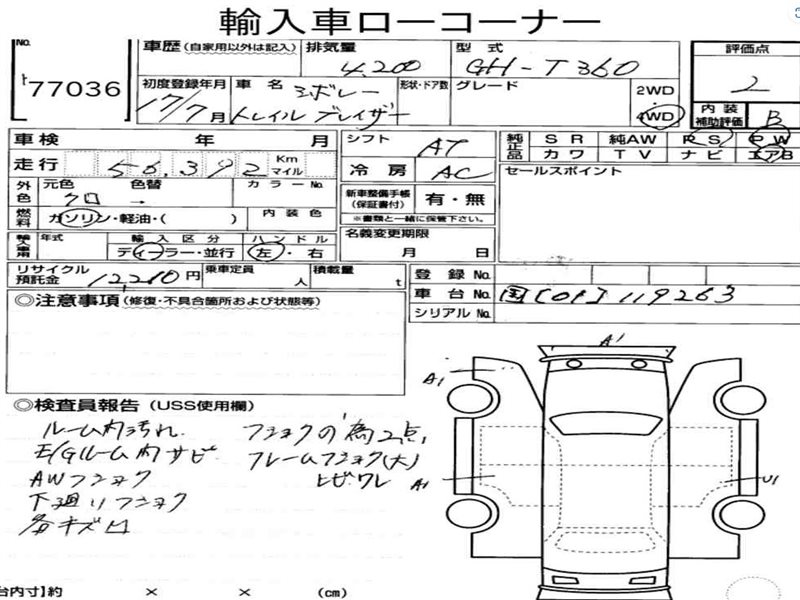 輸入車ローコーナー
No. ト 77036
車歴 (自家用以外は記入) 排気量 4,200 型式 GH-T360 評価点 2
初度登録年月 17/7月 車名 シボレー トレイルブレイザー 形状・ドア数 グレード 2WD 4WD 内装補助評価 B
車検 年 月 シフト AT 純正品 SR 純AW PS PW
カワ TV ナビ エアB
走行 56,392 Km マイル 冷房 AC セールスポイント
外色 元色 クロ 色替 → カラーNo. 新車整備手帳 (保証書付) 有・無
※書類と一緒に保管下さい。
燃料 ガソリン・軽油・( ) 内装色
名義変更期限 月 日
輸入車用 年式 輸入区分 ディーラー・並行 ハンドル 左・右
リサイクル預託金 12,210円 乗車定員 人 積載量 t 登録No.
車台No. 国[01]119263
シリアルNo.
◎注意事項 (修復・不具合箇所および状態等)
◎検査員報告 (USS使用欄)
ルーム内汚れ フショクの為2点
E/Gルーム内サビ フレームフショク(大)
AWフショク ヒビワレ
下廻りフショク
各キズ凹
A1
A1
A1
U1
台内寸】約 × × (cm)